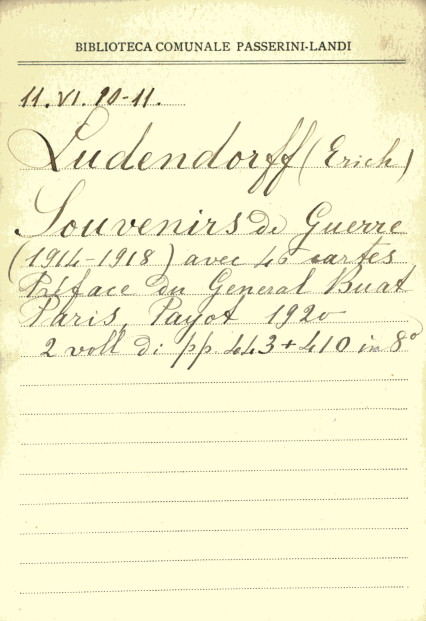 BIBLIOTECA COMUNALE PASSERINI-LANDI
11.VI.10-11.
Ludendorff (Erich)
Souvenirs de Guerre
(1914-1918) avec 46 cartes
Préface du General Buat
Paris, Payot 1920
2 voll di pp 443+410 in 8°